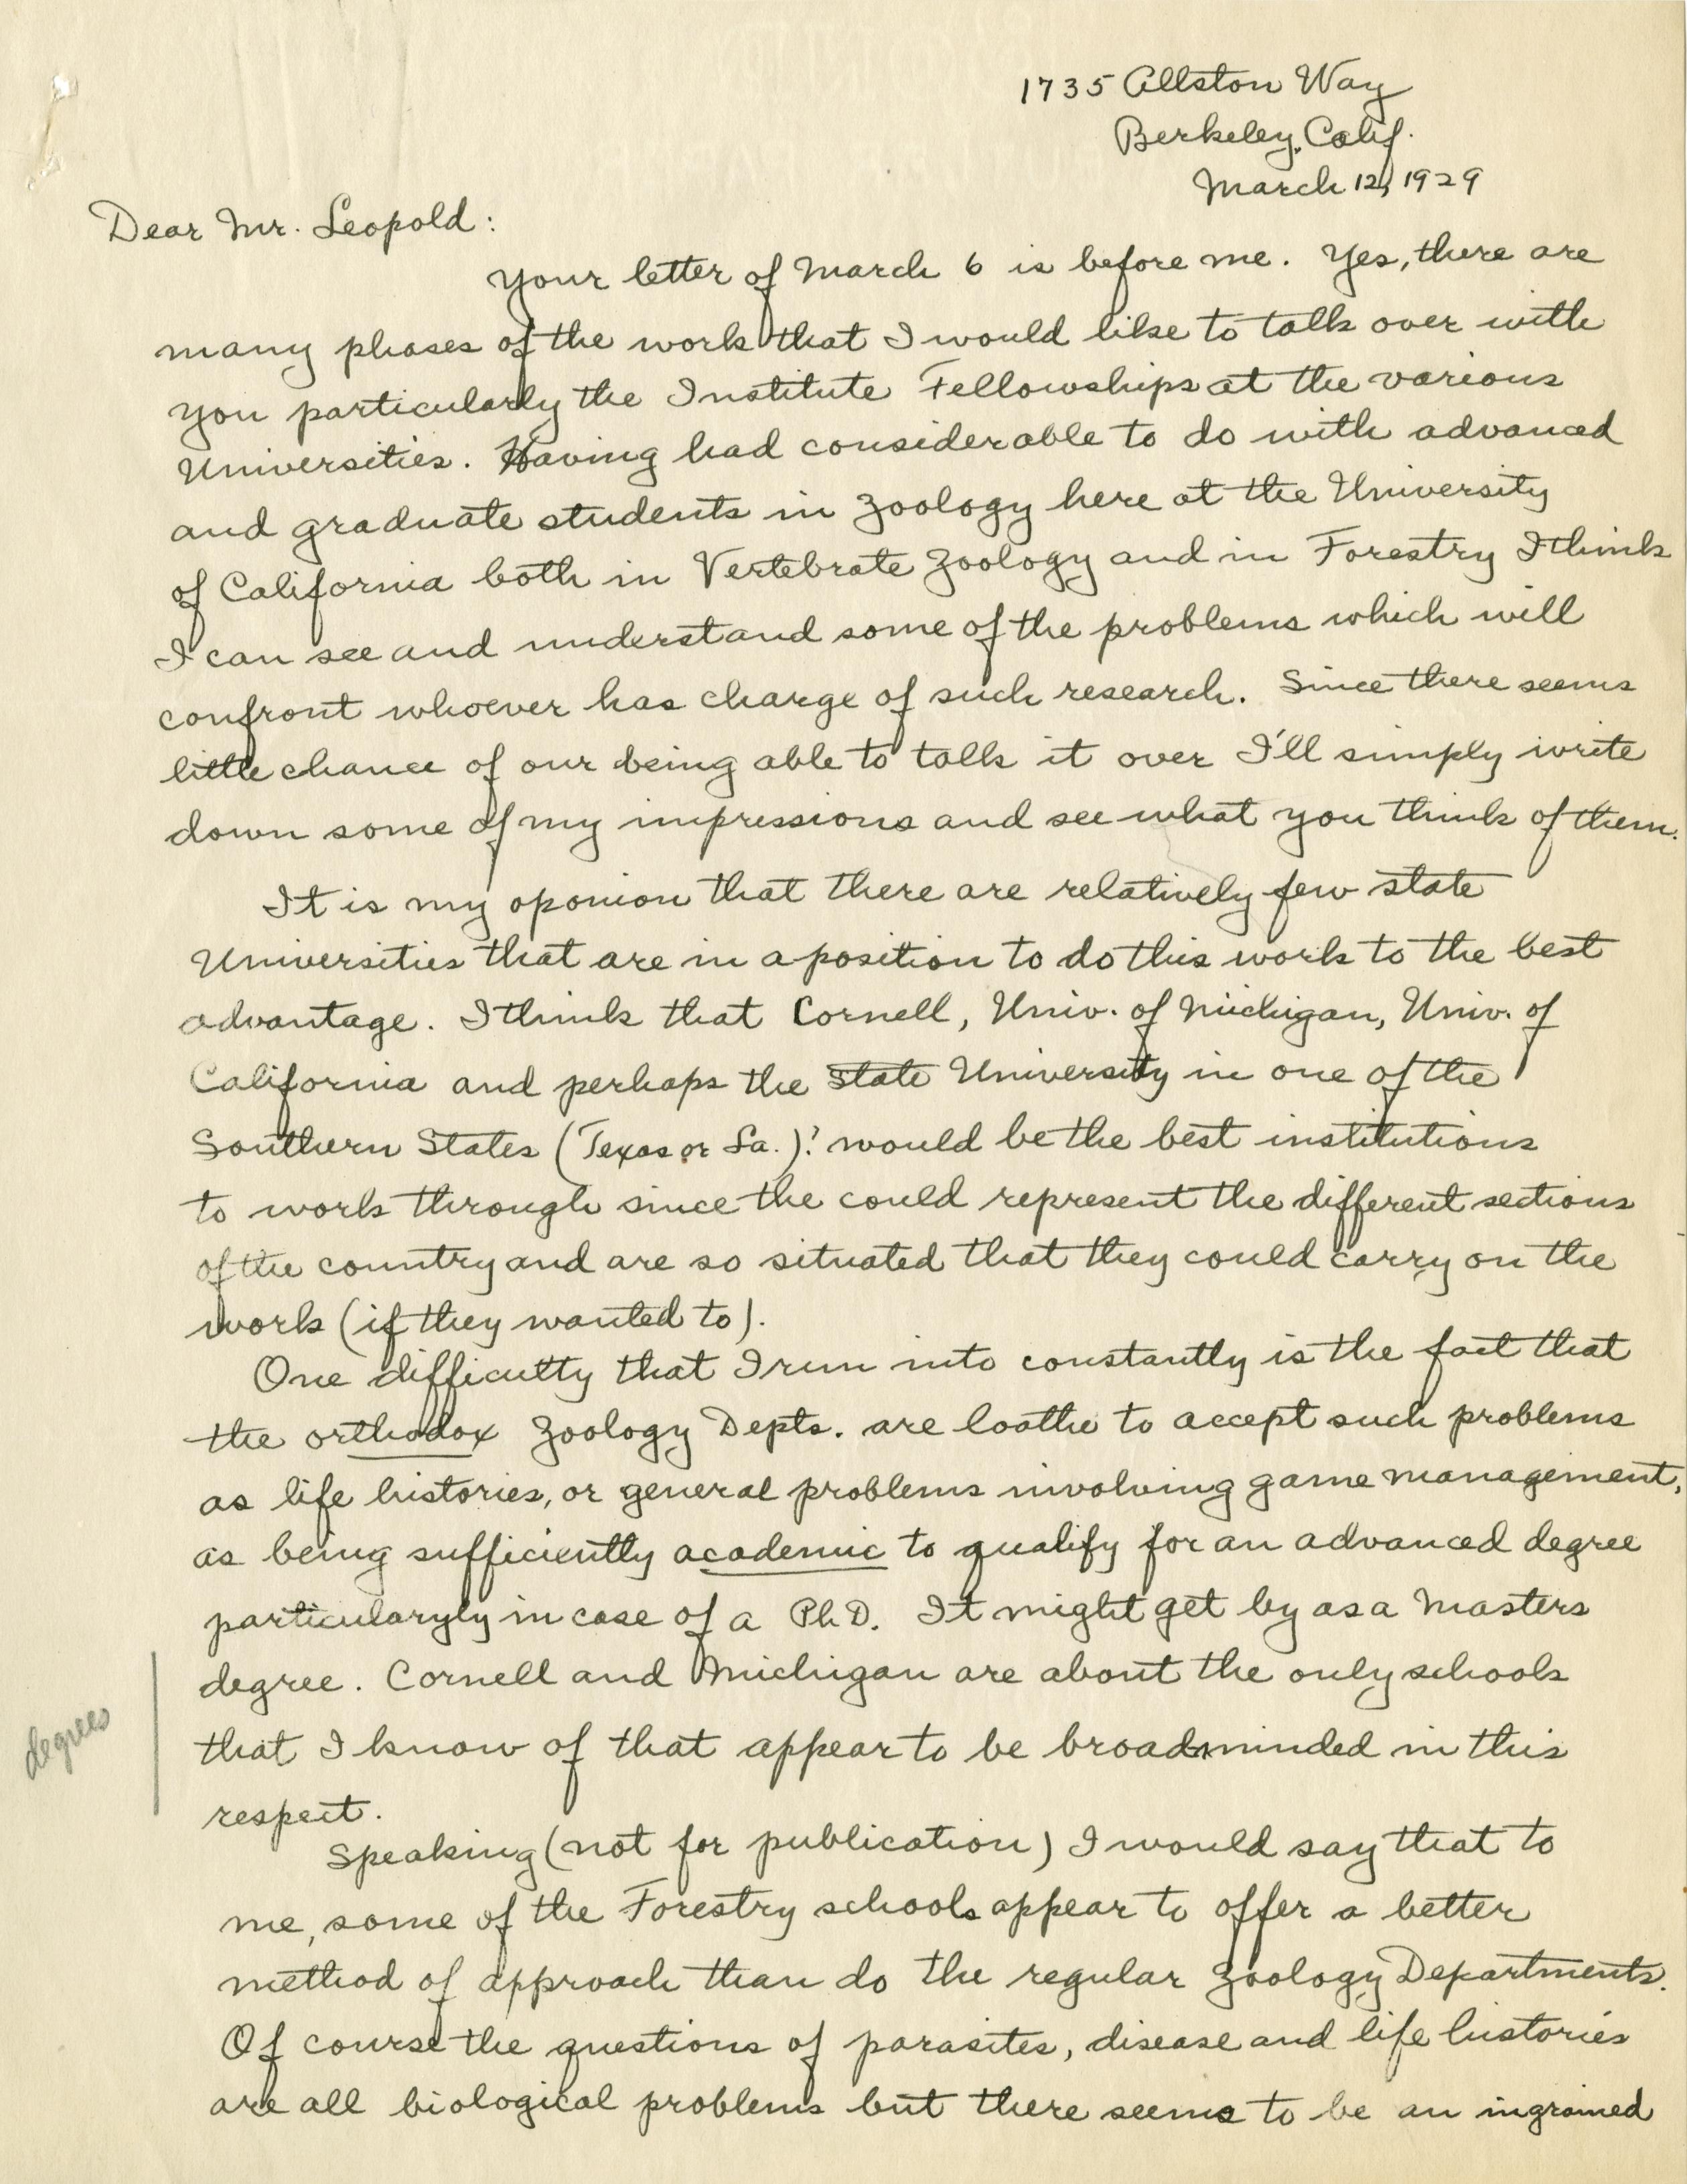 1735 Allston Way
Berkeley, Calif.
March 12, 1929
Dear Mr. Leopold:
Your letter of March 6 is before me. Yes, there are
many phases of the work that I would like to talk over with
you particularly the Institute Fellowships at the various
Universities. Having had considerable to do with advanced
and graduate students in Zoology here at the University
of California both in Vertebrate Zoology and in Forestry I think
I can see and understand some of the problems which will
confront whoever has charge of such research. Since there seems
little chance of our being able to talk it over I'll simply write
down some of my impressions and see what you think of them.
It is my oponion that there are relatively few state
Universities that are in a position to do this work to the best
advantage. I think that Cornell, Univ. of Michigan, Univ. of
California and perhaps the State University in one of the
Southern States (Texas or La.)? would be the best institutions
to work through since the could represent the different sections
of the country and are so situated that they could carry on the
work (if they wanted to).
One difficulty that I run into constantly is the fact that
the orthodox Zoology Depts. are loathe to accept such problems
as life histories, or general problems involving game management,
as being sufficiently academic to qualify for an advanced degree
particularyly in case of a Ph D. It might get by as a Masters
degree. Cornell and Michigan are about the only schools
degrees
that I know of that appear to be broadminded in this
respect.
Speaking (not for publication) I would say that to
me, some of the Forestry schools appear to offer a better
method of approach than do the regular Zoology Departments.
Of course the questions of parasites, disease and life histories
are all biological problems but there seems to be an ingrained